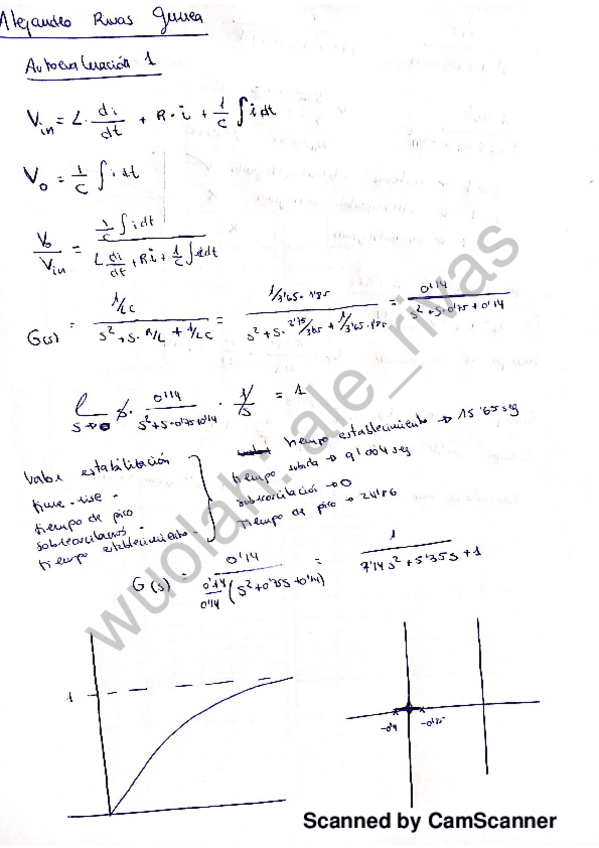 Alejandro Rivas
Autoevaluación 1
V_in = L · di/dt + R · i + 1/C ∫ i dt
V_o = 1/C ∫ i dt
V_o / V_in = (1/C ∫ i dt) / (L di/dt + R i + 1/C ∫ i dt)
G(s) = (1/LC) / (s² + s · R/L + 1/LC) = (1/3'65 · 1'85) / (s² + s · 2'75/3'65 + 1/3'65 · 1'85) = 0'14 / (s² + s · 0'75 + 0'14)
s→0 s · 0'14 / (s² + s · 0'75 + 0'14) · 1/s = 1
Valor estabilización
time-rise -
tiempo de pico
sobreoscilación -
tiempo establecimiento -
tiempo establecimiento → 15'65 seg
tiempo subida → 9'004 seg
sobreoscilación → 0
tiempo de pico → 24'86
G(s) = 0'14 / (0'14/0'14 (s² + 0'75s + 0'14)) = 1 / (7'14 s² + 5'35 s + 1)
1
-0'4
wuolah: ale_rivas
Scanned by CamScanner